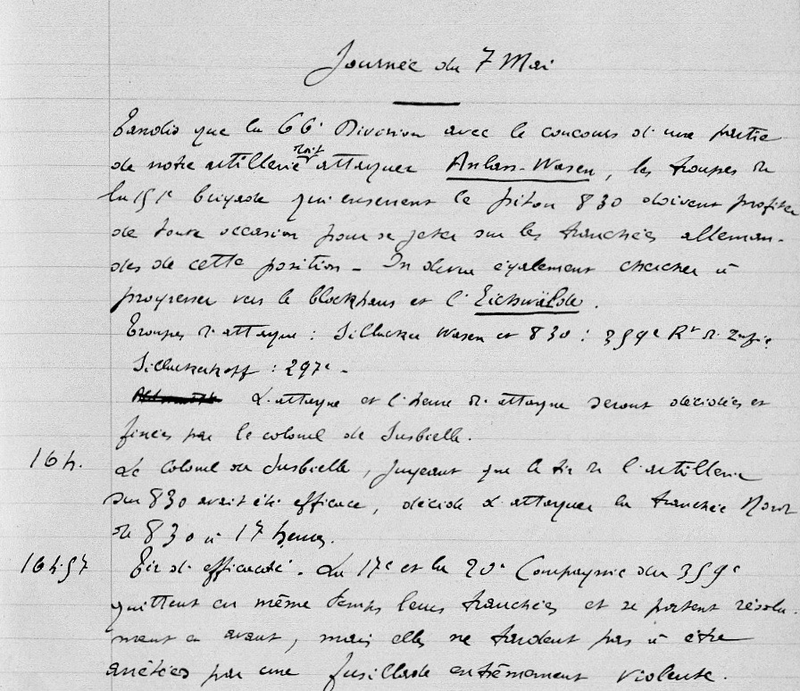 Journée du 7 Mai
Tandis que la 66e Division avec le concours d'une partie
de notre artillerie doit attaquer Anlass-Wasen, les troupes de
la 151e brigade qui enserrent le piton 830 doivent profiter
de toute occasion pour se jeter sur les tranchées alleman-
des de cette position - On devra également chercher à
progresser vers le blockhaus et l'Eichwälde.
Troupes d'attaque : Sillacker Wasen et 830 : 359e Rt d'Infie
Sillackerkopf : 297e -
L'attaque et l'heure d'attaque seront décidées et
fixées par le colonel de Susbielle.
16 h. Le Colonel de Susbielle, jugeant que le tir de l'artillerie
sur 830 avait été efficace, décide d'attaquer la tranchée Nord
de 830 à 17 heures.
16h57 Tir d'efficacité. La 17e et la 20e Compagnie du 359e
quittent en même temps leurs tranchées et se portent résolu-
ment en avant, mais elles ne tardent pas à être
arrêtées par une fusillade extrêmement violente.